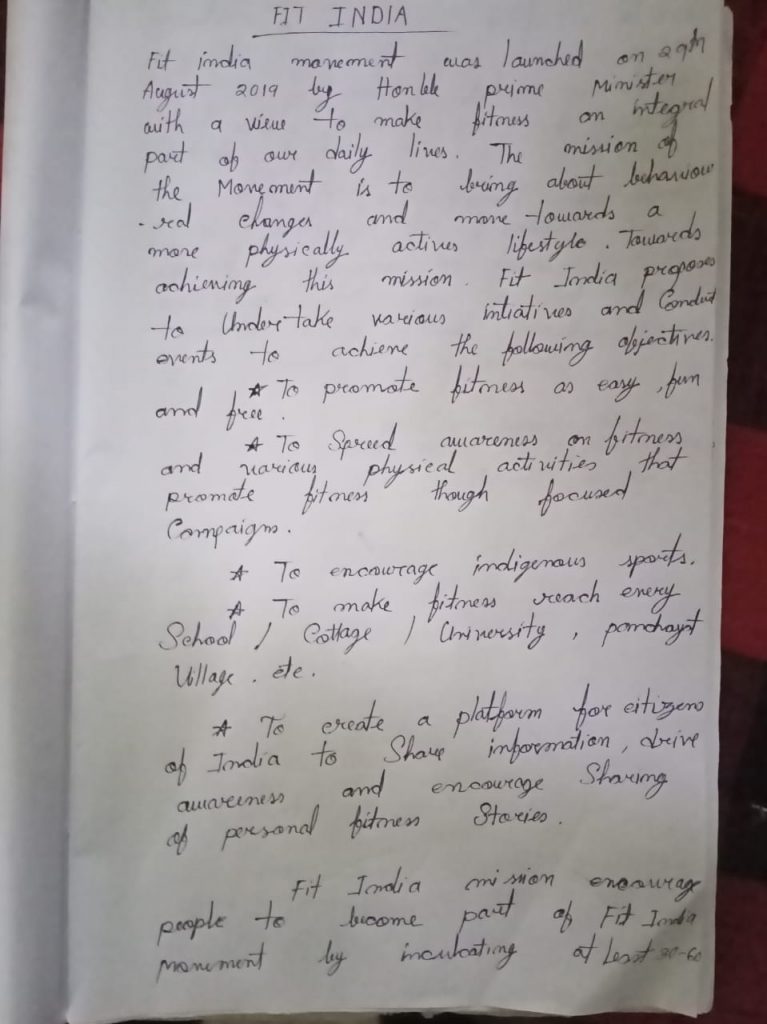 FIT INDIA
Fit india movement was launched on 29th
August 2019 by Honble prime Minister
with a view to make fitness an integral
part of our daily lives. The mission of
the Movement is to bring about behaviour
-ral changes and move towards a
more physically actives lifestyle. Towards
achieving this mission. Fit India proposes
to Undertake various intiatives and Conduct
events to achieve the following objectives.
☆ To promote fitness as easy, fun
and free.
☆ To Spreed awareness on fitness
and various physical activities that
promote fitness though focused
Campaigns.
☆ To encourage indigenous sports.
☆ To make fitness reach every
School / Cottage / University, panchayt
Village. etc.
☆ To create a platform for citizens
of India to Share information, drive
awareness and encourage Sharing
of personal fitness Stories.
Fit India mission encourag
people to become part of Fit India
Movement by inculcating at Lesst 30-60